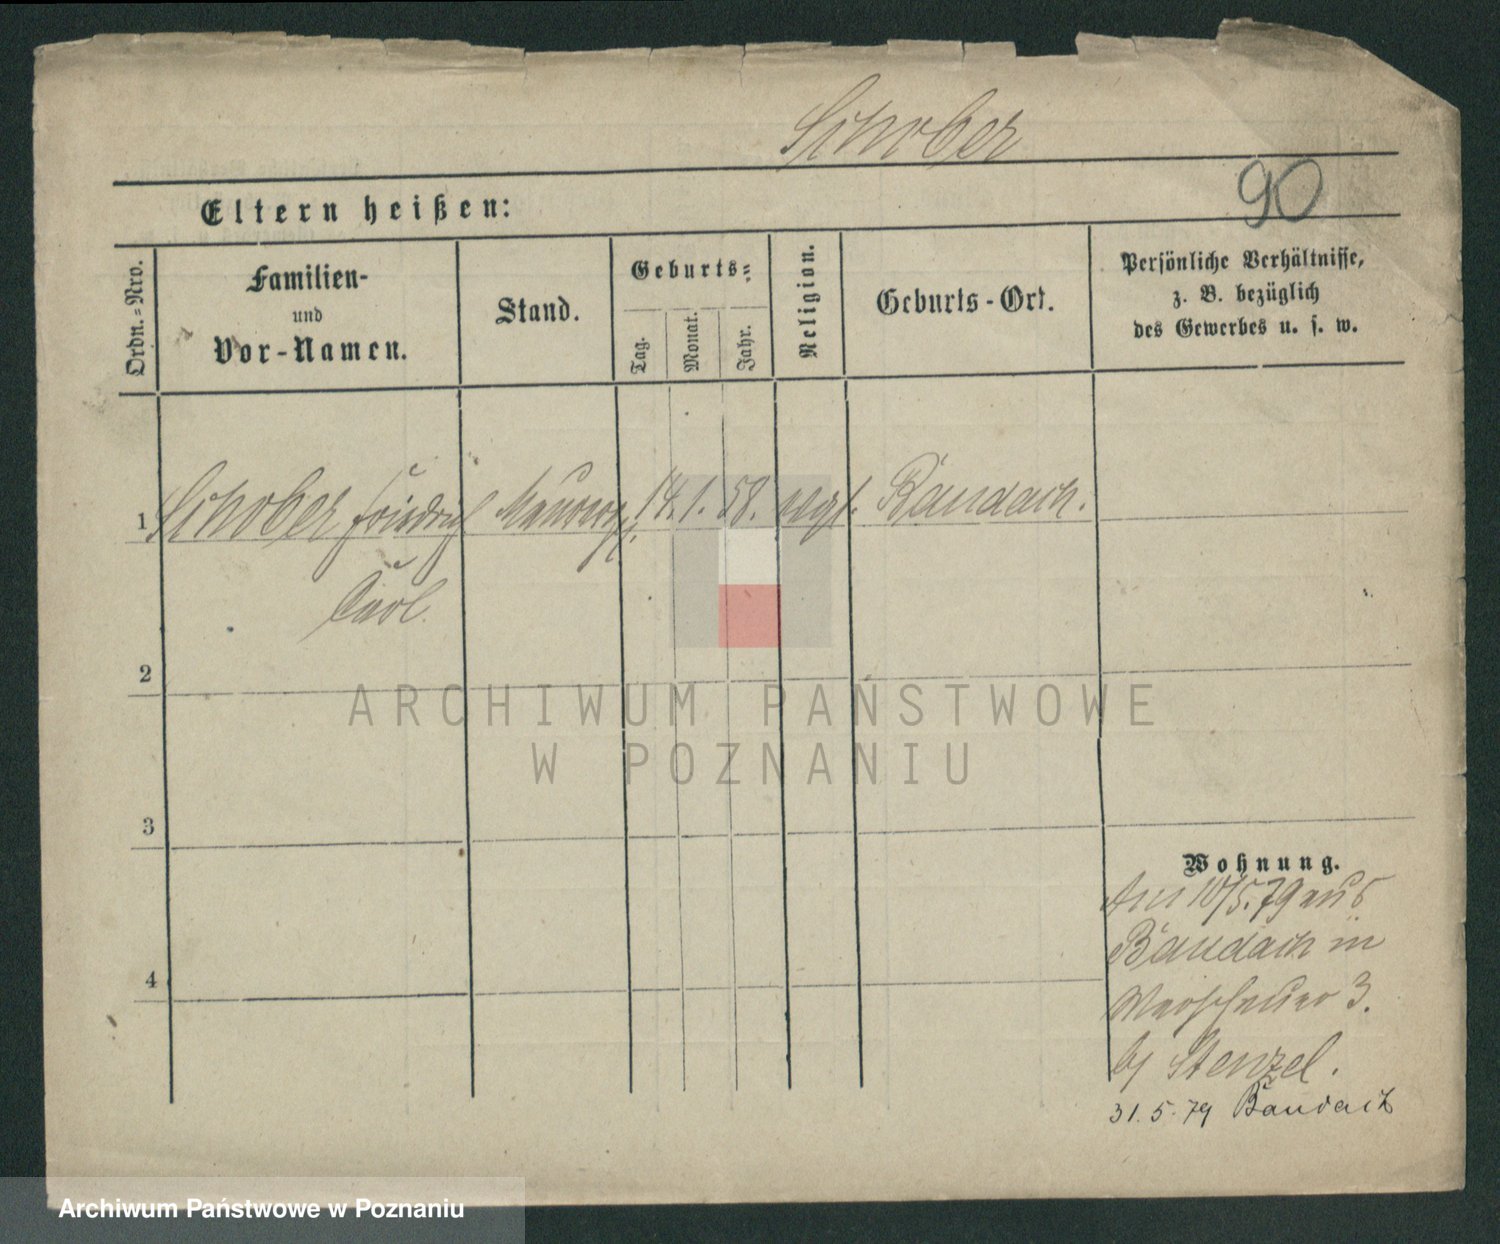 Schober
90
Eltern heißen:
Ordn.-Nro.
Familien-
und
Vor-Namen.
Stand.
Geburts-
Tag.
Monat.
Jahr.
Religion.
Geburts-Ort.
Persönliche Verhältnisse,
z. B. bezüglich
des Gewerbes u. s. w.
1 Schober Friedrich 14. 1. 58. Baudach.
Carl.
2
3
4
Wohnung.
Am 10/5. 79 aus
Baudach in
3.
bj Stenzel.
31. 5. 79 Baudach
ARCHIWUM PAŃSTWOWE
W POZNANIU
Archiwum Państwowe w Poznaniu